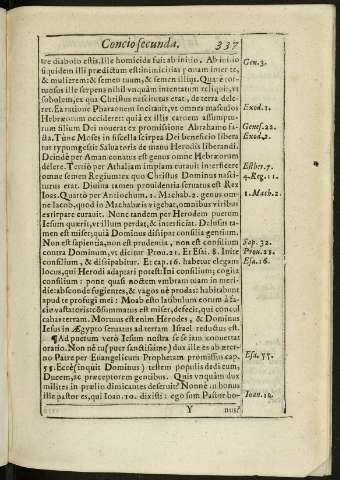 Concio secunda. 337
tre diabolo estis. Ille homicida fuit ab initio. Ab initio
siquidem illi prædictum est inimicitias ponam inter te,
& mulierem: & semen tuum, & semen illius. Quare tor-
tuosus ille serpens nihil vnquam intentatum reliquit, vt
sobolem, ex qua Christus nasciturus erat, de terra dele-
ret. Ea ratione Pharaonem incitauit, vt omnes masculos
Hebræorum occideret: quia ex illis carnem assumptu-
rum filium Dei nouerat ex promissione Abrahamo fa-
cta. Tunc Moses in fiscella scirpea Dei beneficio libera
tur typum gessit Saluatoris de manu Herodis liberandi.
Deinde per Aman conatus est genus omne Hebræorum
delere. Tertio per Athaliam impiam curauit interficere
omne semen Regium: ex quo Christus Dominus nasci-
turus erat. Diuina tamen prouidentia seruatus est Rex
Ioas. Quarto per Antiochum. 1. Machab. 2. genus om-
ne Iacob, quod in Machabæis vigebat, omnibus viribus
extirpare curauit. Nunc tandem per Herodem puerum
Iesum quærit, vt illum perdat, & interficiat. Delusus ta-
men est miser; quia Dominus dissipat consilia gentium.
Non est sapientia, non est prudentia, non est consilium
contra Dominum, vt dicitur Prou. 21. Et Esai. 8. Inite
consilium, & dissipabitur. Et cap. 16. habetur elegans
locus, qui Herodi adaptari potest: Ini consilium; cogita
consilium: pone quasi noctem vmbram tuam in meri-
die: absconde fugientes, & vagos ne prodas: habitabunt
apud te profugi mei: Moab esto latibulum eorum à fa-
cie vastatoris: consummatus est miser, defecit, qui concul
cabat terram. Mortuus est enim Herodes, & Dominus
Iesus in Ægypto seruatus ad terram Israel reductus est.
¶ Ad puerum vero Iesum nostra se se iam conuertat
oratio. Non ne tu (puer sanctissime) dux ille es ab æter-
no Patre per Euangelicum Prophetam promissus cap.
55. Ecce (inquit Dominus) testem populis dedi eum,
Ducem, ac præceptorem gentibus. Quis vnquam dux
milites in prælio dimicantes deseruit? Nonne tu bonus
ille pastor es, qui Ioan. 10. dixisti: ego sum Pastor bo-
Y nus?
Gen. 3.
Exod. 1.
Genes. 22.
Exod. 2.
Esther. 7.
4. Reg. 11.
1. Mach. 2.
Sap. 32.
Prou. 21.
Esa. 16.
Esa. 55.
Ioan. 10.